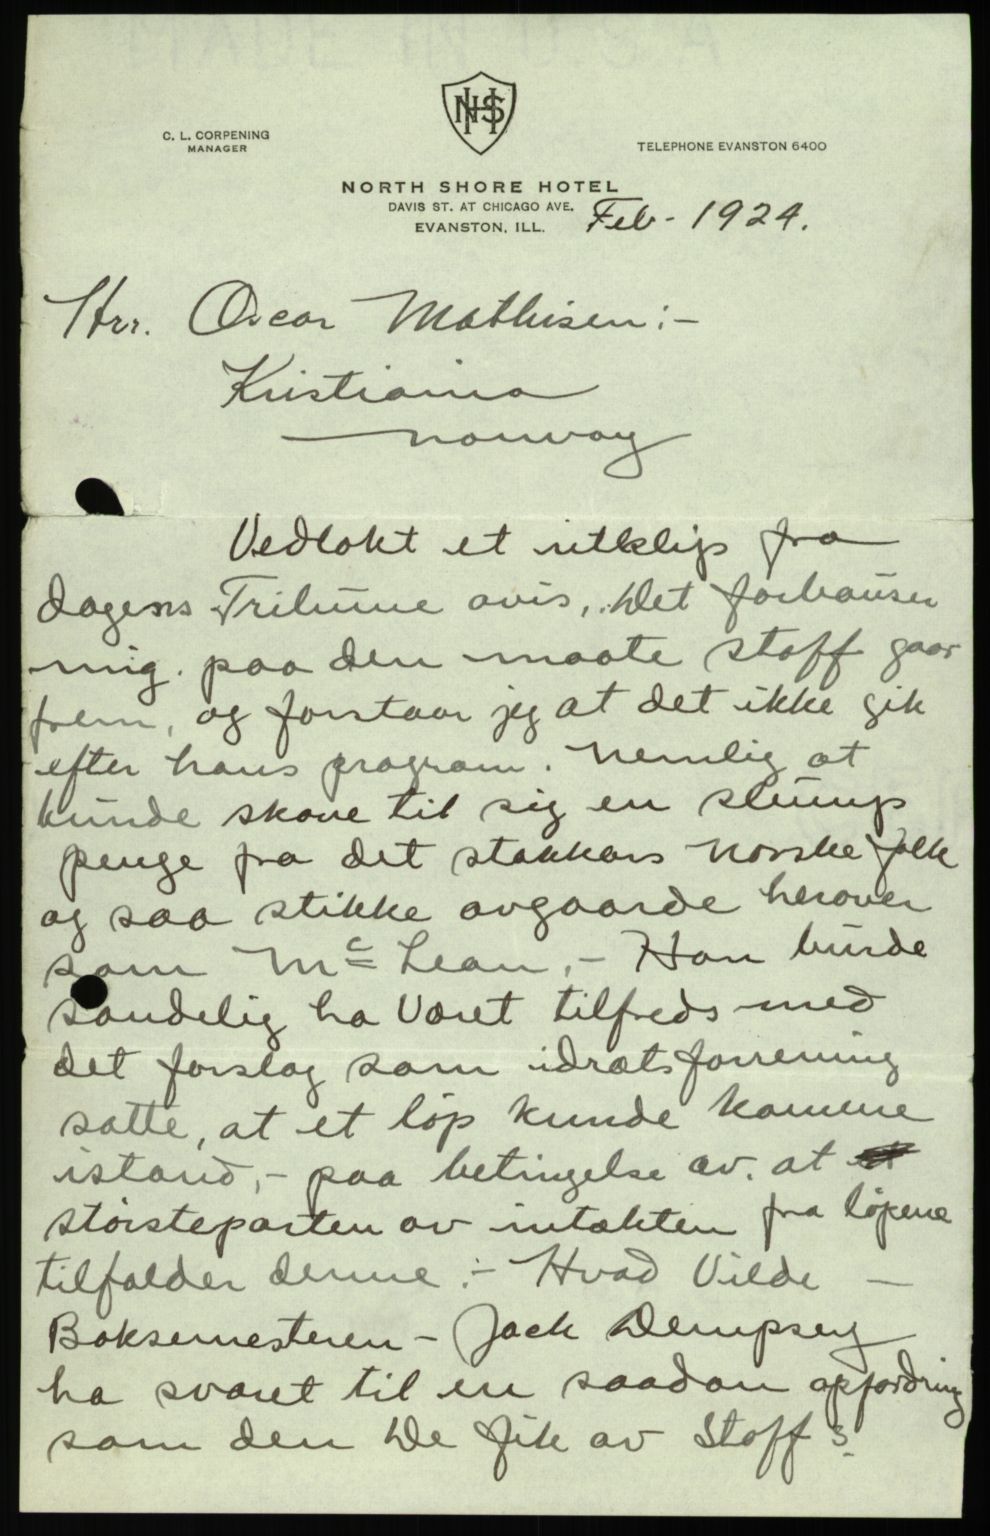 NHS
C. L. CORPENING
MANAGER
TELEPHONE EVANSTON 6400
NORTH SHORE HOTEL
DAVIS ST. AT CHICAGO AVE.
EVANSTON, ILL.
Feb - 1924.
Hrr. Oscar Mathisen :-
Kristiania
Norway
Vedlakt et utklip fra
dagens Tribune avis, Det forbauser
mig. paa den maate Stoff gaar
frem, og forstaar jeg at det ikke gik
efter hans program. Nemlig at
kunde skave til sig en slump
penge fra det stakkars Norske folk
og saa stikke avgaarde herover
som Mc Lean, - Han burde
sandelig ha Været tilfreds med
det forslag som idrætsforrening
satte, at et løp kunde komme
istand, - paa betingelse av. at
størsteparten av intækten fra løpene
tilfalder denne :- Hvad Vilde -
Boksemesteren - Jack Dempsey
ha svaret til en saadan opfordring
som den De fik av Stoff?